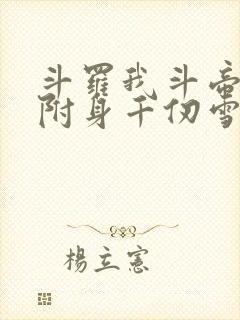 斗羅我斗帝
附身千仞雪
楊立憲